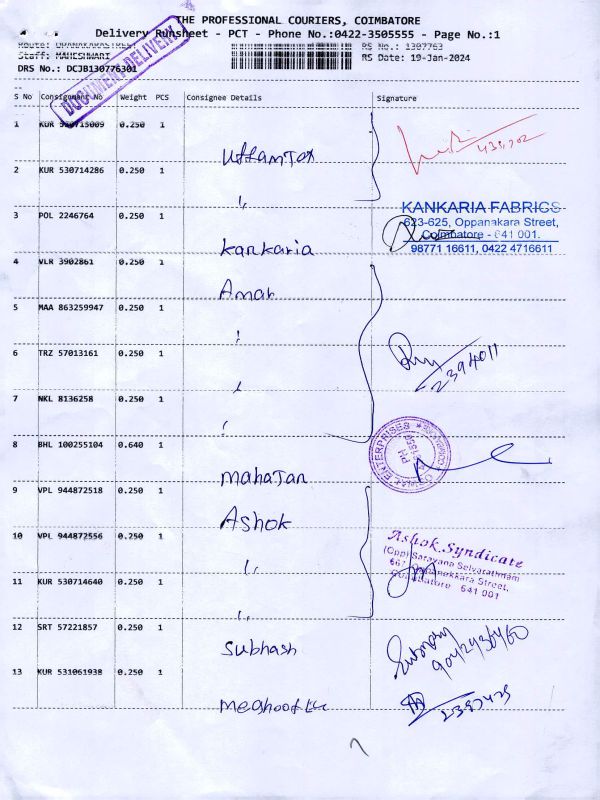 THE PROFESSIONAL COURIERS, COIMBATORE
Delivery Runsheet - PCT - Phone No.:0422-3505555 - Page No.:1
Route: OPPANAKARASTREET RS No.: 1307763
Staff: MAHESHWARI RS Date: 19-Jan-2024
DRS No.: DCJB130776301
DOCUMENT DELIVERY
S No Consignment No Weight PCS Consignee Details Signature
1 KUR 0.250 1 Uttam Tex
2 KUR 530714286 0.250 1 "
3 POL 2246764 0.250 1 Kankaria
KANKARIA FABRICS
623-625, Oppanakara Street,
Coimbatore - 641 001.
98771 16611, 0422 4716611
4 VLR 3902861 0.250 1 Amar
5 MAA 863259947 0.250 1 "
6 TRZ 57013161 0.250 1 "
7 NKL 8136258 0.250 1 "
2394011
8 BHL 100255104 0.640 1 Mahajan
ENTERPRISES
9 VPL 944872518 0.250 1 Ashok
10 VPL 944872556 0.250 1 "
11 KUR 530714640 0.250 1 "
Ashok Syndicate
(Opp) Saravana Selvarathnam
667, Oppanakkara Street,
Coimbatore 641 001
12 SRT 57221857 0.250 1 Subhash
13 KUR 531061938 0.250 1